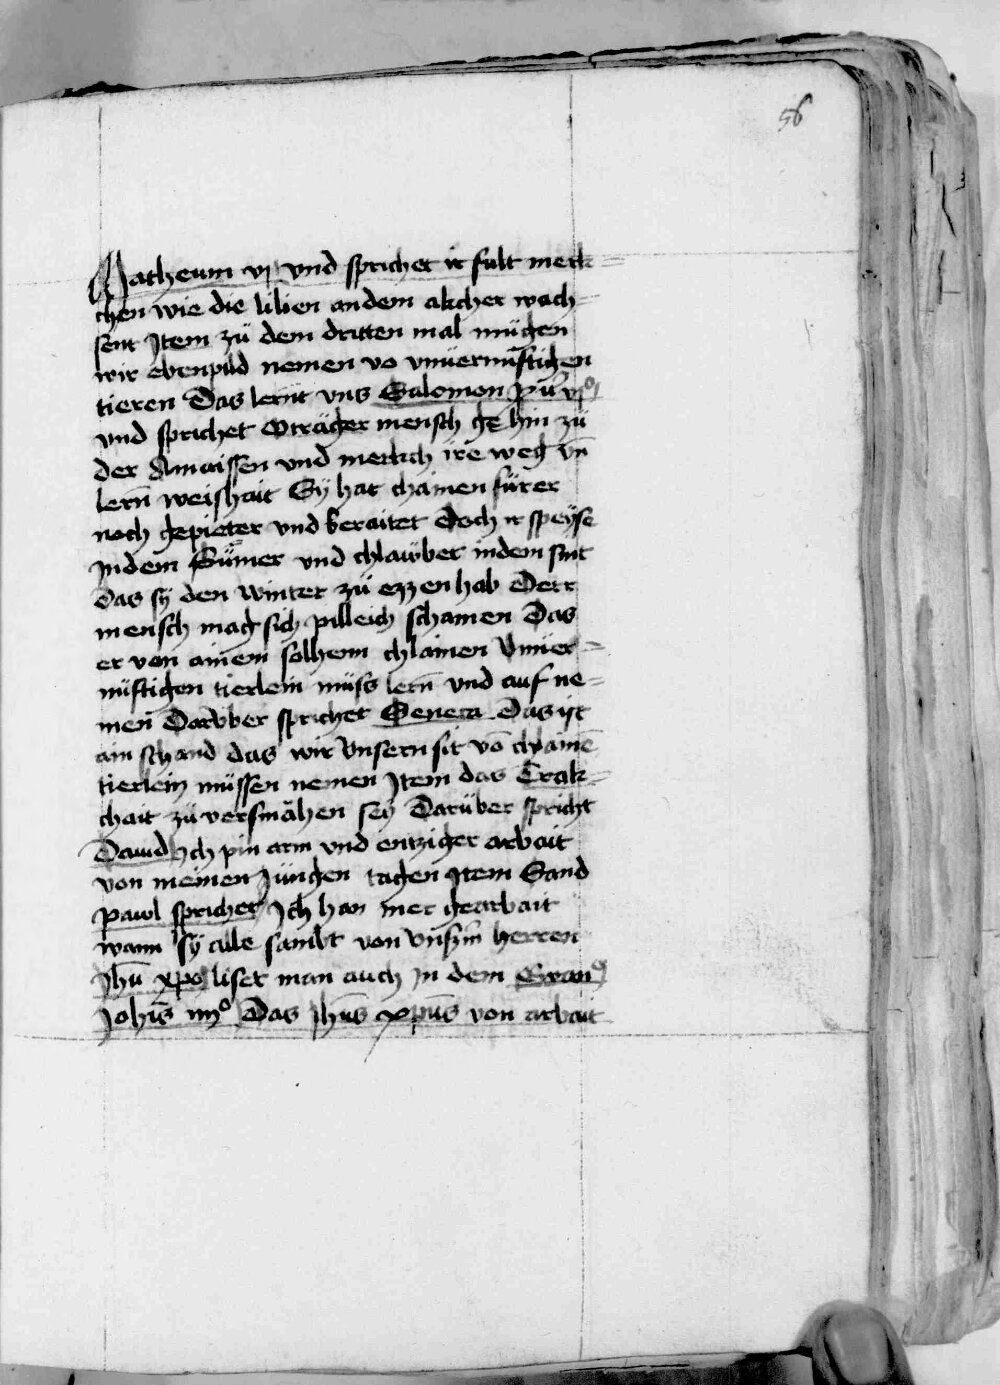 56
Matheum vj vnd sprichet ir sult merk=
chen wie die lilien an dem akcher wach=
sent Item zü dem dritten mal mügen
wir ebenpild nemen võ vnuernüftigen
tieren Das lernt vns Salomon puͤ vjº
vnd sprichet O träger mensch ge hin zü
der Amaissen vnd merkch ire weg vñ
lerñ weishait Sÿ hat chainen fürer
noch gepieter vnd beraitet doch ir speÿse
in dem Sümer vnd chlawbet in dem snit
das sÿ den winter zü ezzen hab Derr
mensch mag sich pilleich schamen Das
er von ainem solhenn chlainen Vnuer=
nüftigen tierlein müss lerñ vnd auf ne=
men Darvber sprichet Seneca Das ist
ain schand das wir Vnsern sit võ chlainẽ
tierlein müssen nemen Item das Trak=
chait zü versmähen seÿ Darüber spricht
Dauid Ich pin arm vnd entziger arbait
von meinen Jüngen tagen Item Sand
pawl sprichet Ich han mer gearbait
wann sÿ alle sambt von Vnserm herren
Jhũ xpo liset man auch in dem Ewanº
Johis iiijº Das Jhũs xpũs von arbait